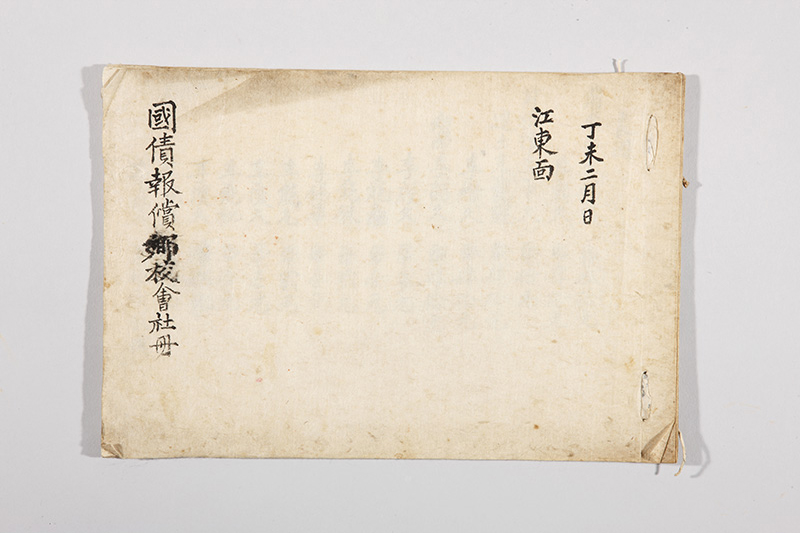 丁未二月日
江東面
國債報償鄕校會社冊